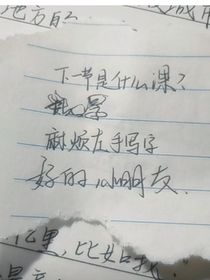 地方的
下一节是什么课？
麻烦左手写字
好的，小朋友.
亿里，比如找